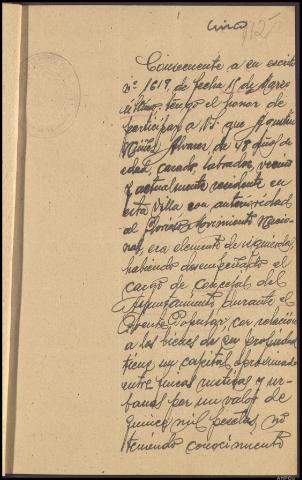 Cinco
112
Consecuente a su escrito
nº 1619, de fecha de Marzo
último, tengo el honor de
participar a V.S. que Agustín
Núñez Alvarez, de 48 años de
edad, casado, labrador, vecino
y actualmente residente en
esta Villa con anterioridad
al Glorioso Movimiento Nacio-
nal, era elemento de izquierda,
habiendo desempeñado el
cargo de concejal del
Ayuntamiento durante el
Frente Popular, con relación
a los bienes de su propiedad
tiene un capital aproximado
entre fincas rusticas y ur-
banas por un valor de
quince mil pesetas, no
teniendo conocimiento